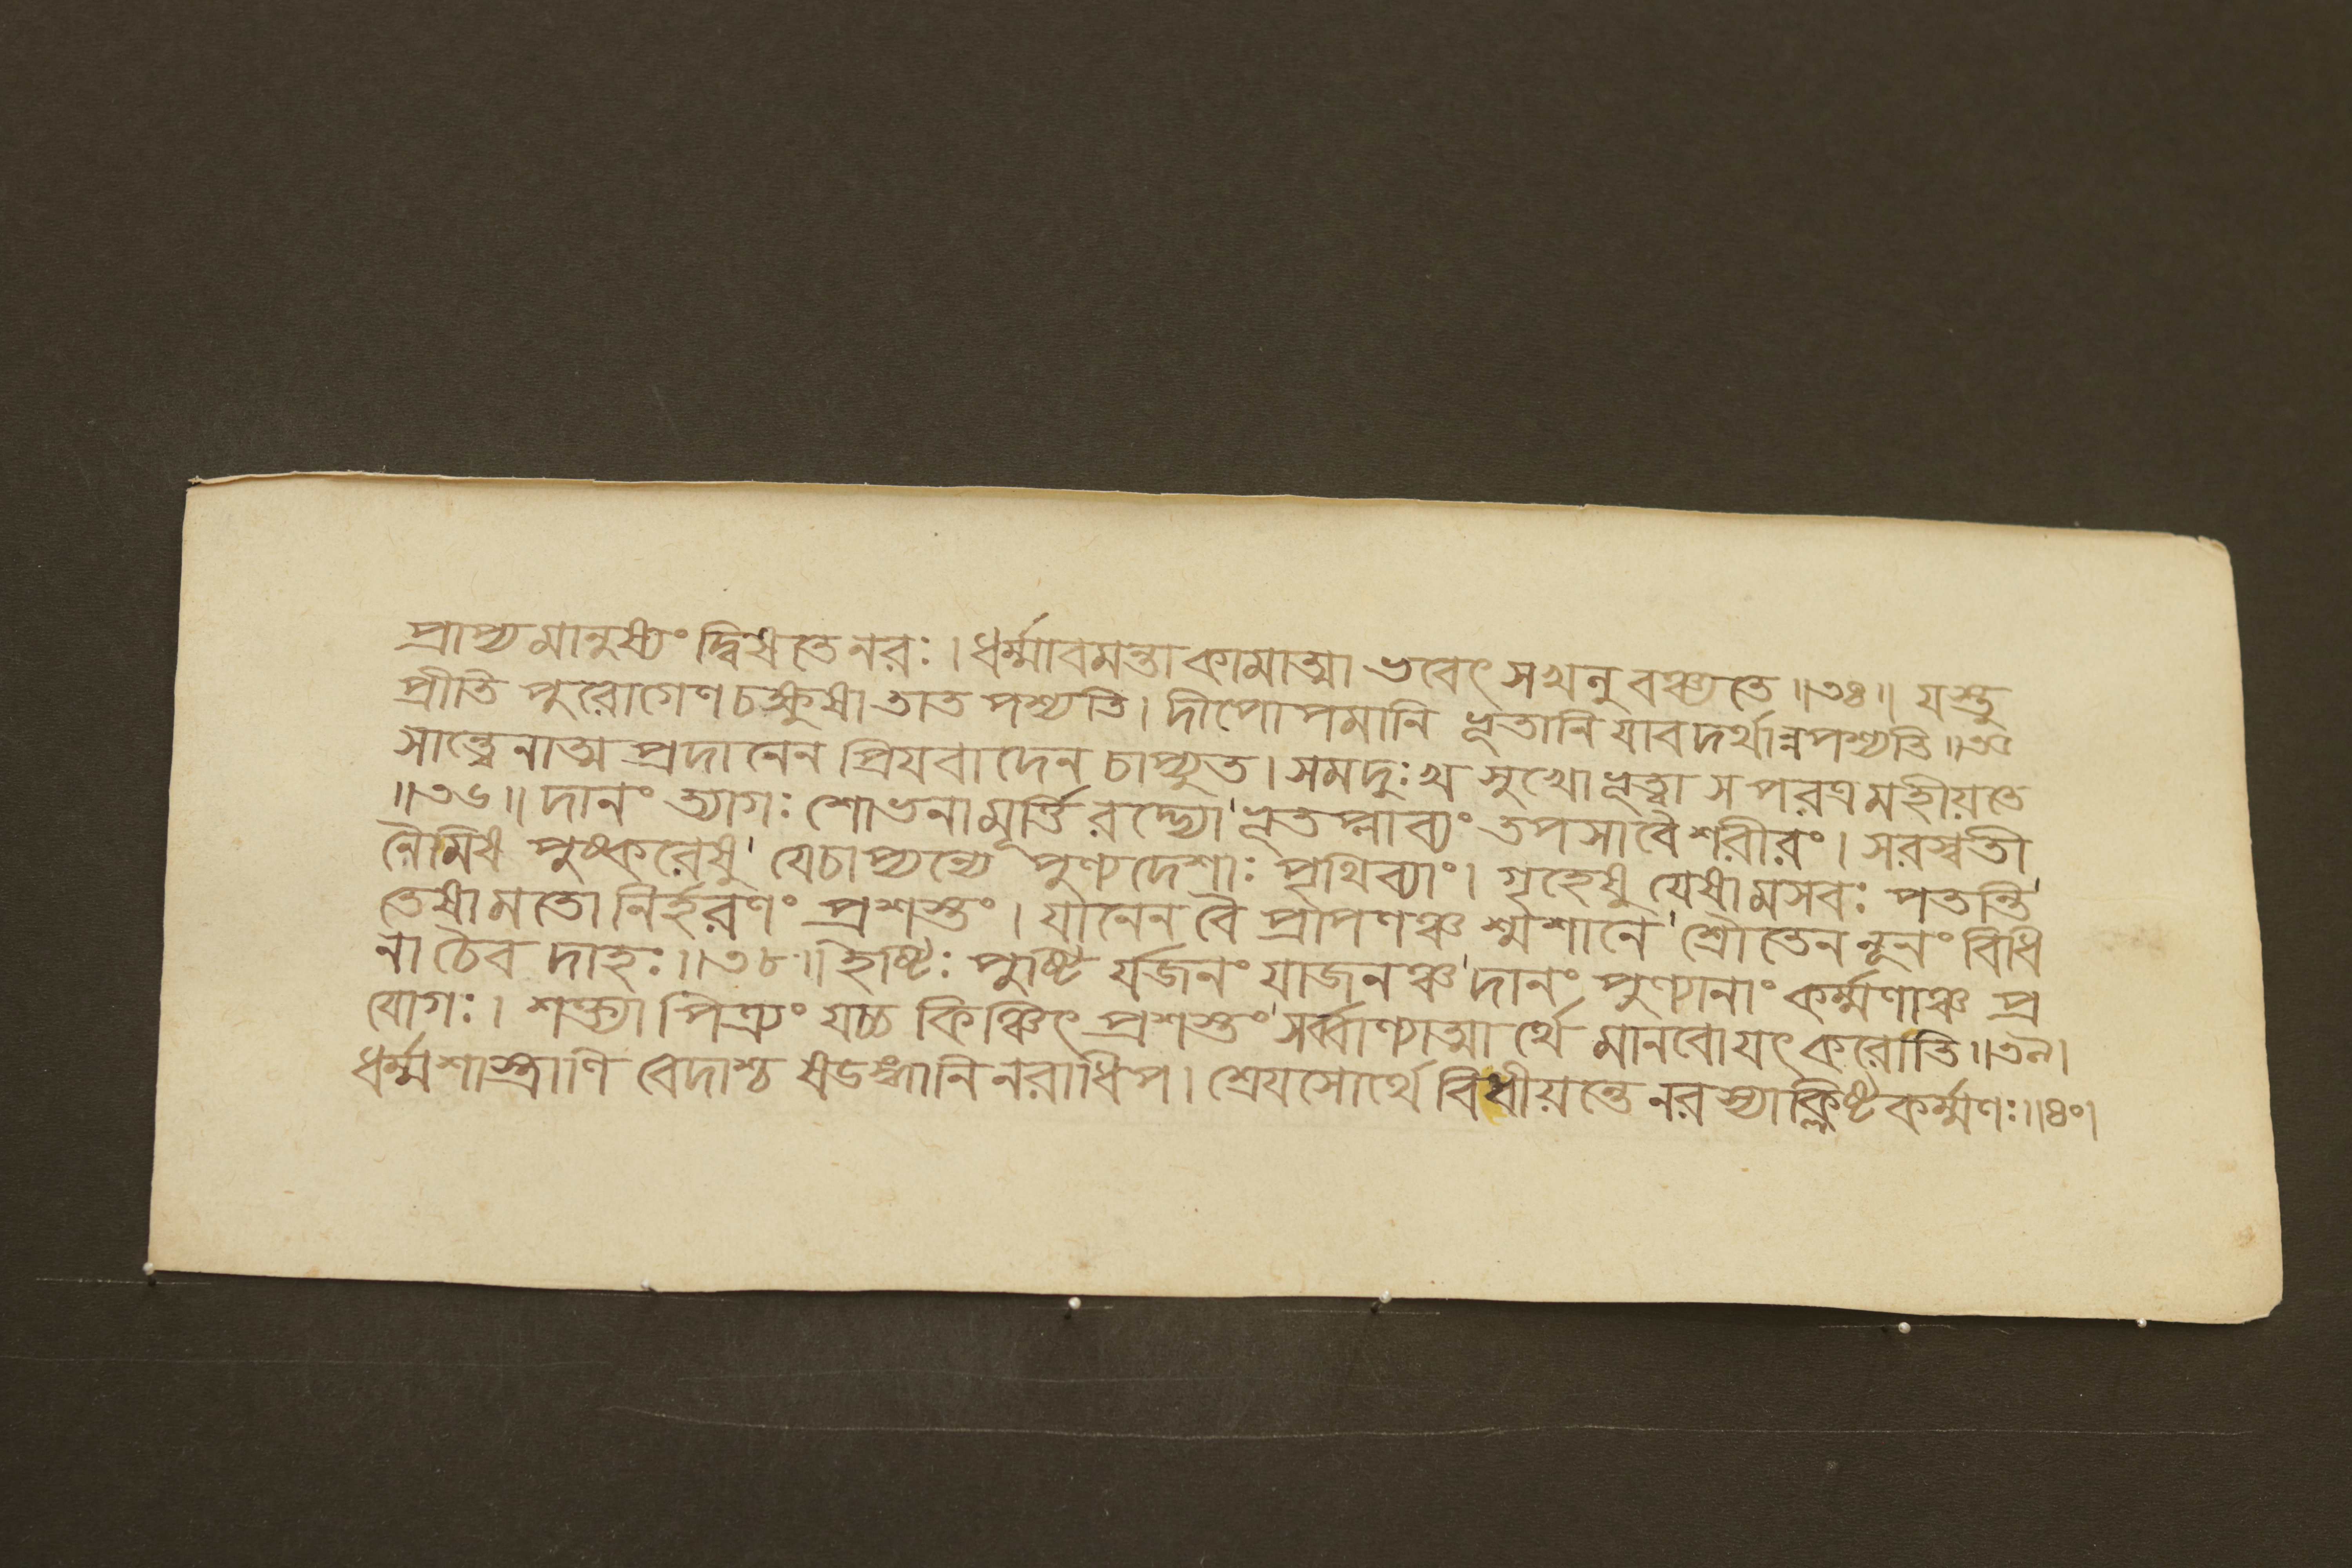 প্রাপ্য মানুষ্যং দ্বিষতে নরঃ । ধর্ম্মাবমন্তা কামাত্মা ভবেৎ স খনু বঞ্চ্যতে ॥৩৪॥ যস্তু
প্রীতি পুরোগেণ চক্ষুষা তাত পশ্যতি । দীপোপমানি ভূতানি যাবদর্থান্নপশ্যতি ॥৩৫
সান্ত্বেনান্ন প্রদানেন প্রিযবাদেন চাপ্যুত । সমদুঃখ সুখো ভূত্বা স পরত্র মহীয়তে
॥৩৬॥ দানং ত্যাগঃ শোভনামূর্ত্তি রদ্ভ্যো' ভূতপ্লাব্যং তপসা বৈ শরীরং । সরস্বতী
নৈমিষ পুষ্করেষু' যে চাপ্যন্যে পুণ্যদেশাঃ পৃথিব্যাং । গৃহেষু যেষামসবঃ পতন্তি'
তেষামতো নির্হরণং প্রশস্তং । যানেন বৈ প্রাপণঞ্চ শ্মশানে' শ্রৌতেন নূনং বিধি
না চৈব দাহঃ ॥৩৮॥ ইষ্টিঃ পুষ্টি র্যজনং যাজনঞ্চ' দানং পুণ্যানাং কর্ম্মণাঞ্চ প্র
যোগঃ । শক্ত্যা পিত্র্যং যচ্চ কিঞ্চিৎ প্রশস্তং' সর্ব্বাণ্যাত্মার্থে মানবোযৎ করোতি ॥৩৯।
ধর্ম্মশাস্ত্রাণি বেদাশ্চ ষডঙ্গানি নরাধিপ । শ্রেযসোর্থে বিধীয়ন্তে নরস্যাক্লিষ্ট কর্ম্মণঃ ॥৪০।